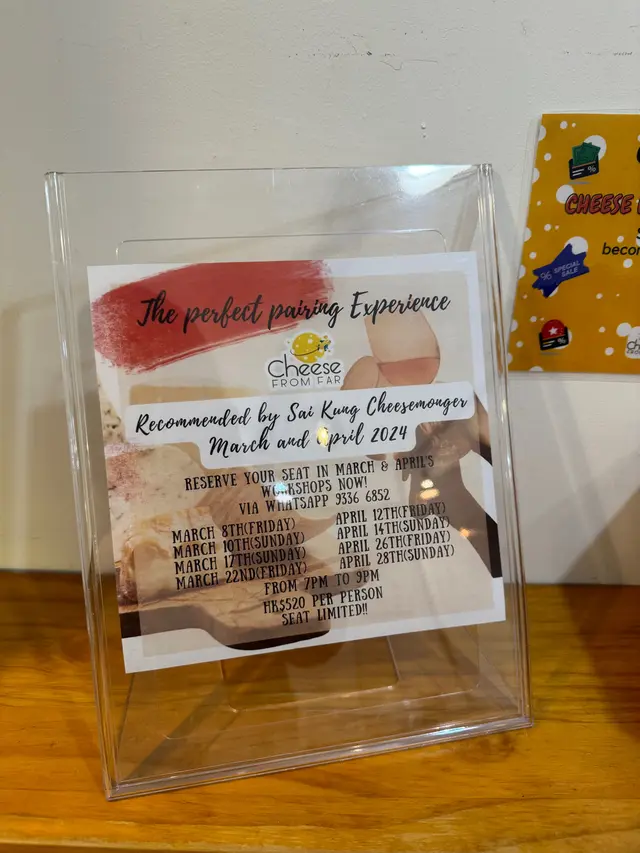 The perfect pairing Experience
Cheese
FROM FAR
Recommended by Sai Kung Cheesemonger
March and April 2024
RESERVE YOUR SEAT IN MARCH & APRIL'S
WORKSHOPS NOW!
VIA WHATSAPP 9336 6852
MARCH 8TH(FRIDAY)
MARCH 10TH(SUNDAY)
MARCH 17TH(SUNDAY)
MARCH 22ND(FRIDAY)
APRIL 12TH(FRIDAY)
APRIL 14TH(SUNDAY)
APRIL 26TH(FRIDAY)
APRIL 28TH(SUNDAY)
FROM 7PM TO 9PM
HK$520 PER PERSON
SEAT LIMITED!!
%
CHEESE
% SPECIAL
SALE